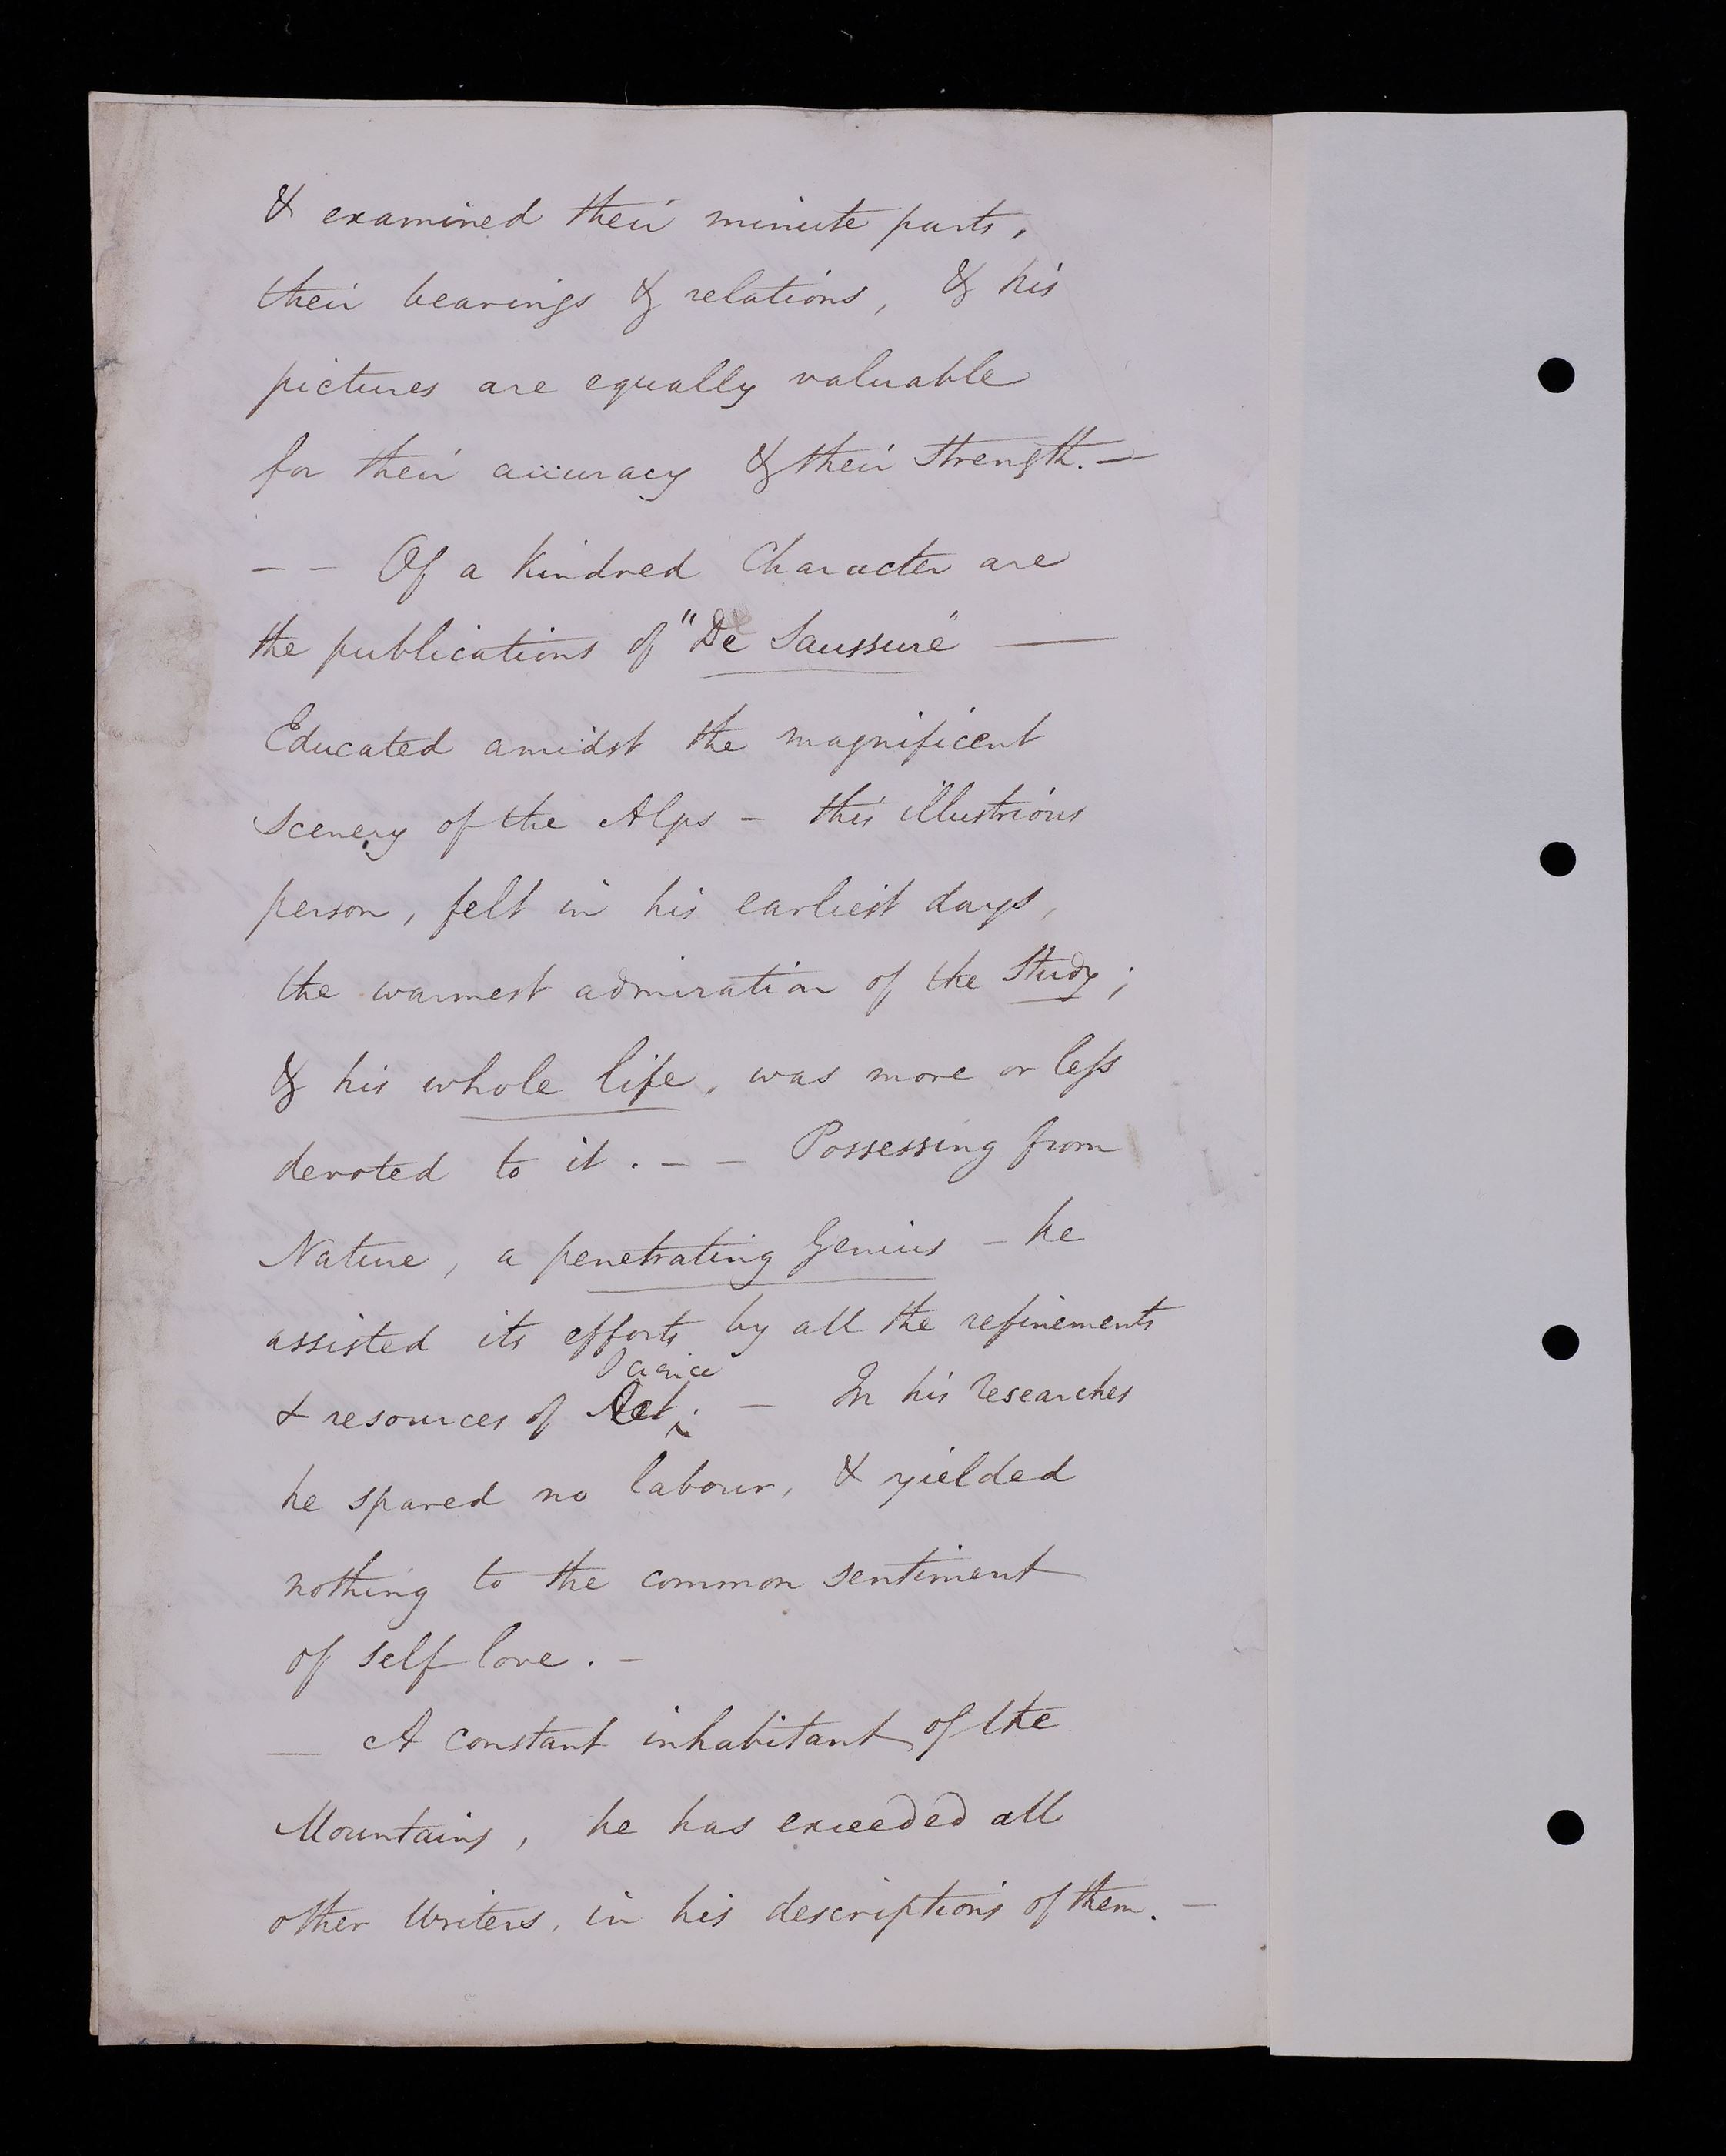 & examined their minute parts,
their bearings & relations, & his
pictures are equally valuable
for their accuracy & their Strength. —
– – Of a kindred Character are
the publications of "De Saussure" —
Educated amidst the magnificent
Scenery of the Alps – this illustrious
person, felt in his earliest days,
the warmest admiration of the Study;
& his whole life, was more or less
devoted to it. – – Possessing from
Nature, a penetrating Genius – he
assisted its efforts by all the refinements
Science
& resources of Art; – In his researches
he spared no labour, & yielded
nothing to the common sentiment
of self love. –
— A constant inhabitant of the
Mountains, he has exceeded all
other Writers, in his descriptions of them. –